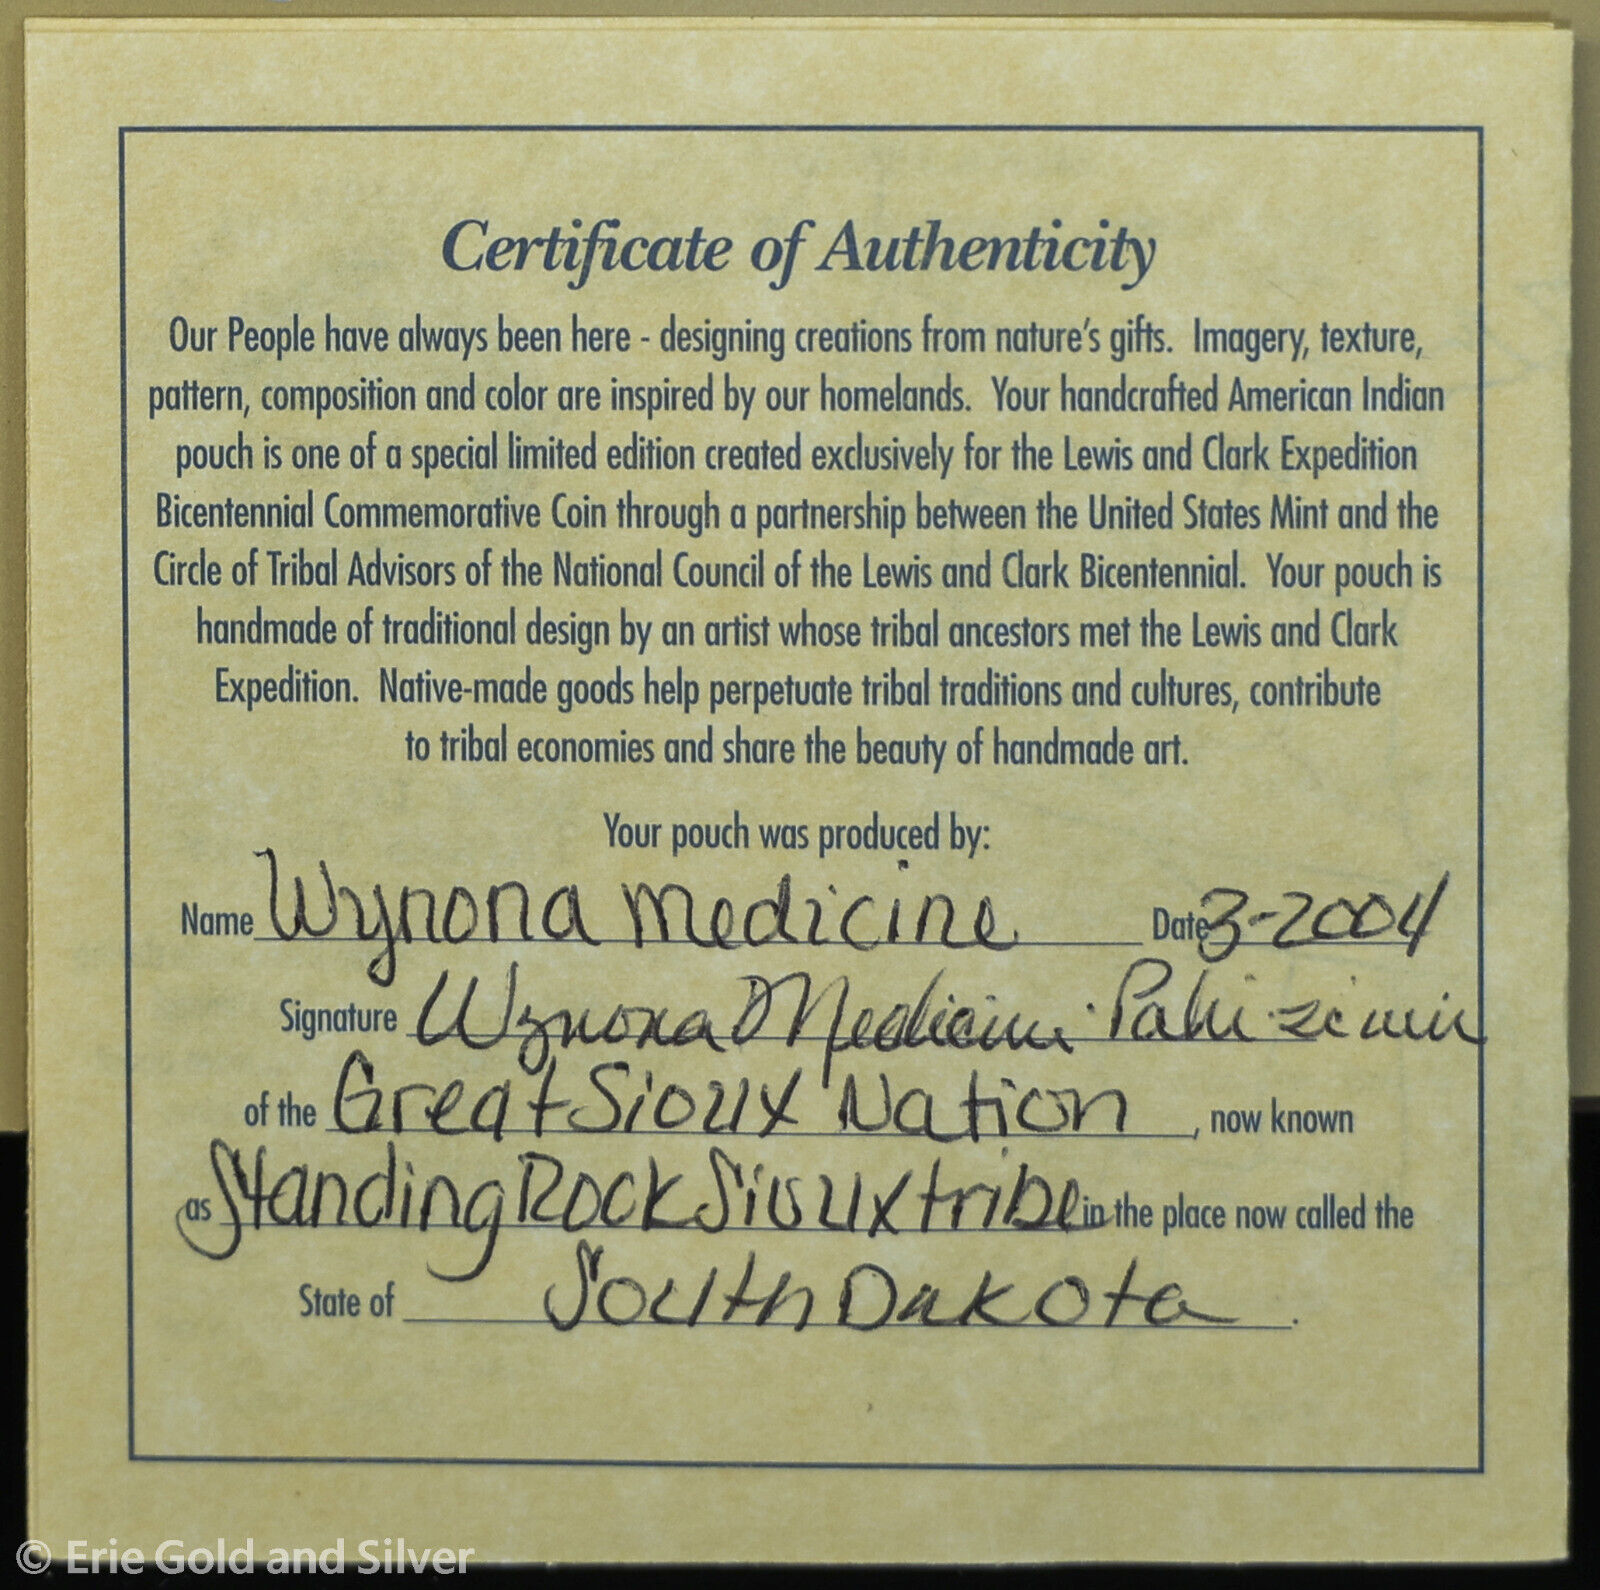 Certificate of Authenticity
Our People have always been here - designing creations from nature's gifts. Imagery, texture,
pattern, composition and color are inspired by our homelands. Your handcrafted American Indian
pouch is one of a special limited edition created exclusively for the Lewis and Clark Expedition
Bicentennial Commemorative Coin through a partnership between the United States Mint and the
Circle of Tribal Advisors of the National Council of the Lewis and Clark Bicentennial. Your pouch is
handmade of traditional design by an artist whose tribal ancestors met the Lewis and Clark
Expedition. Native-made goods help perpetuate tribal traditions and cultures, contribute
to tribal economies and share the beauty of handmade art.
Your pouch was produced by:
Name Wynona Medicine Date 3-2004
Signature Wynona Medicine
of the Great Sioux Nation, now known
as Standing Rock Sioux tribe in the place now called the
State of South Dakota.
© Erie Gold and Silver